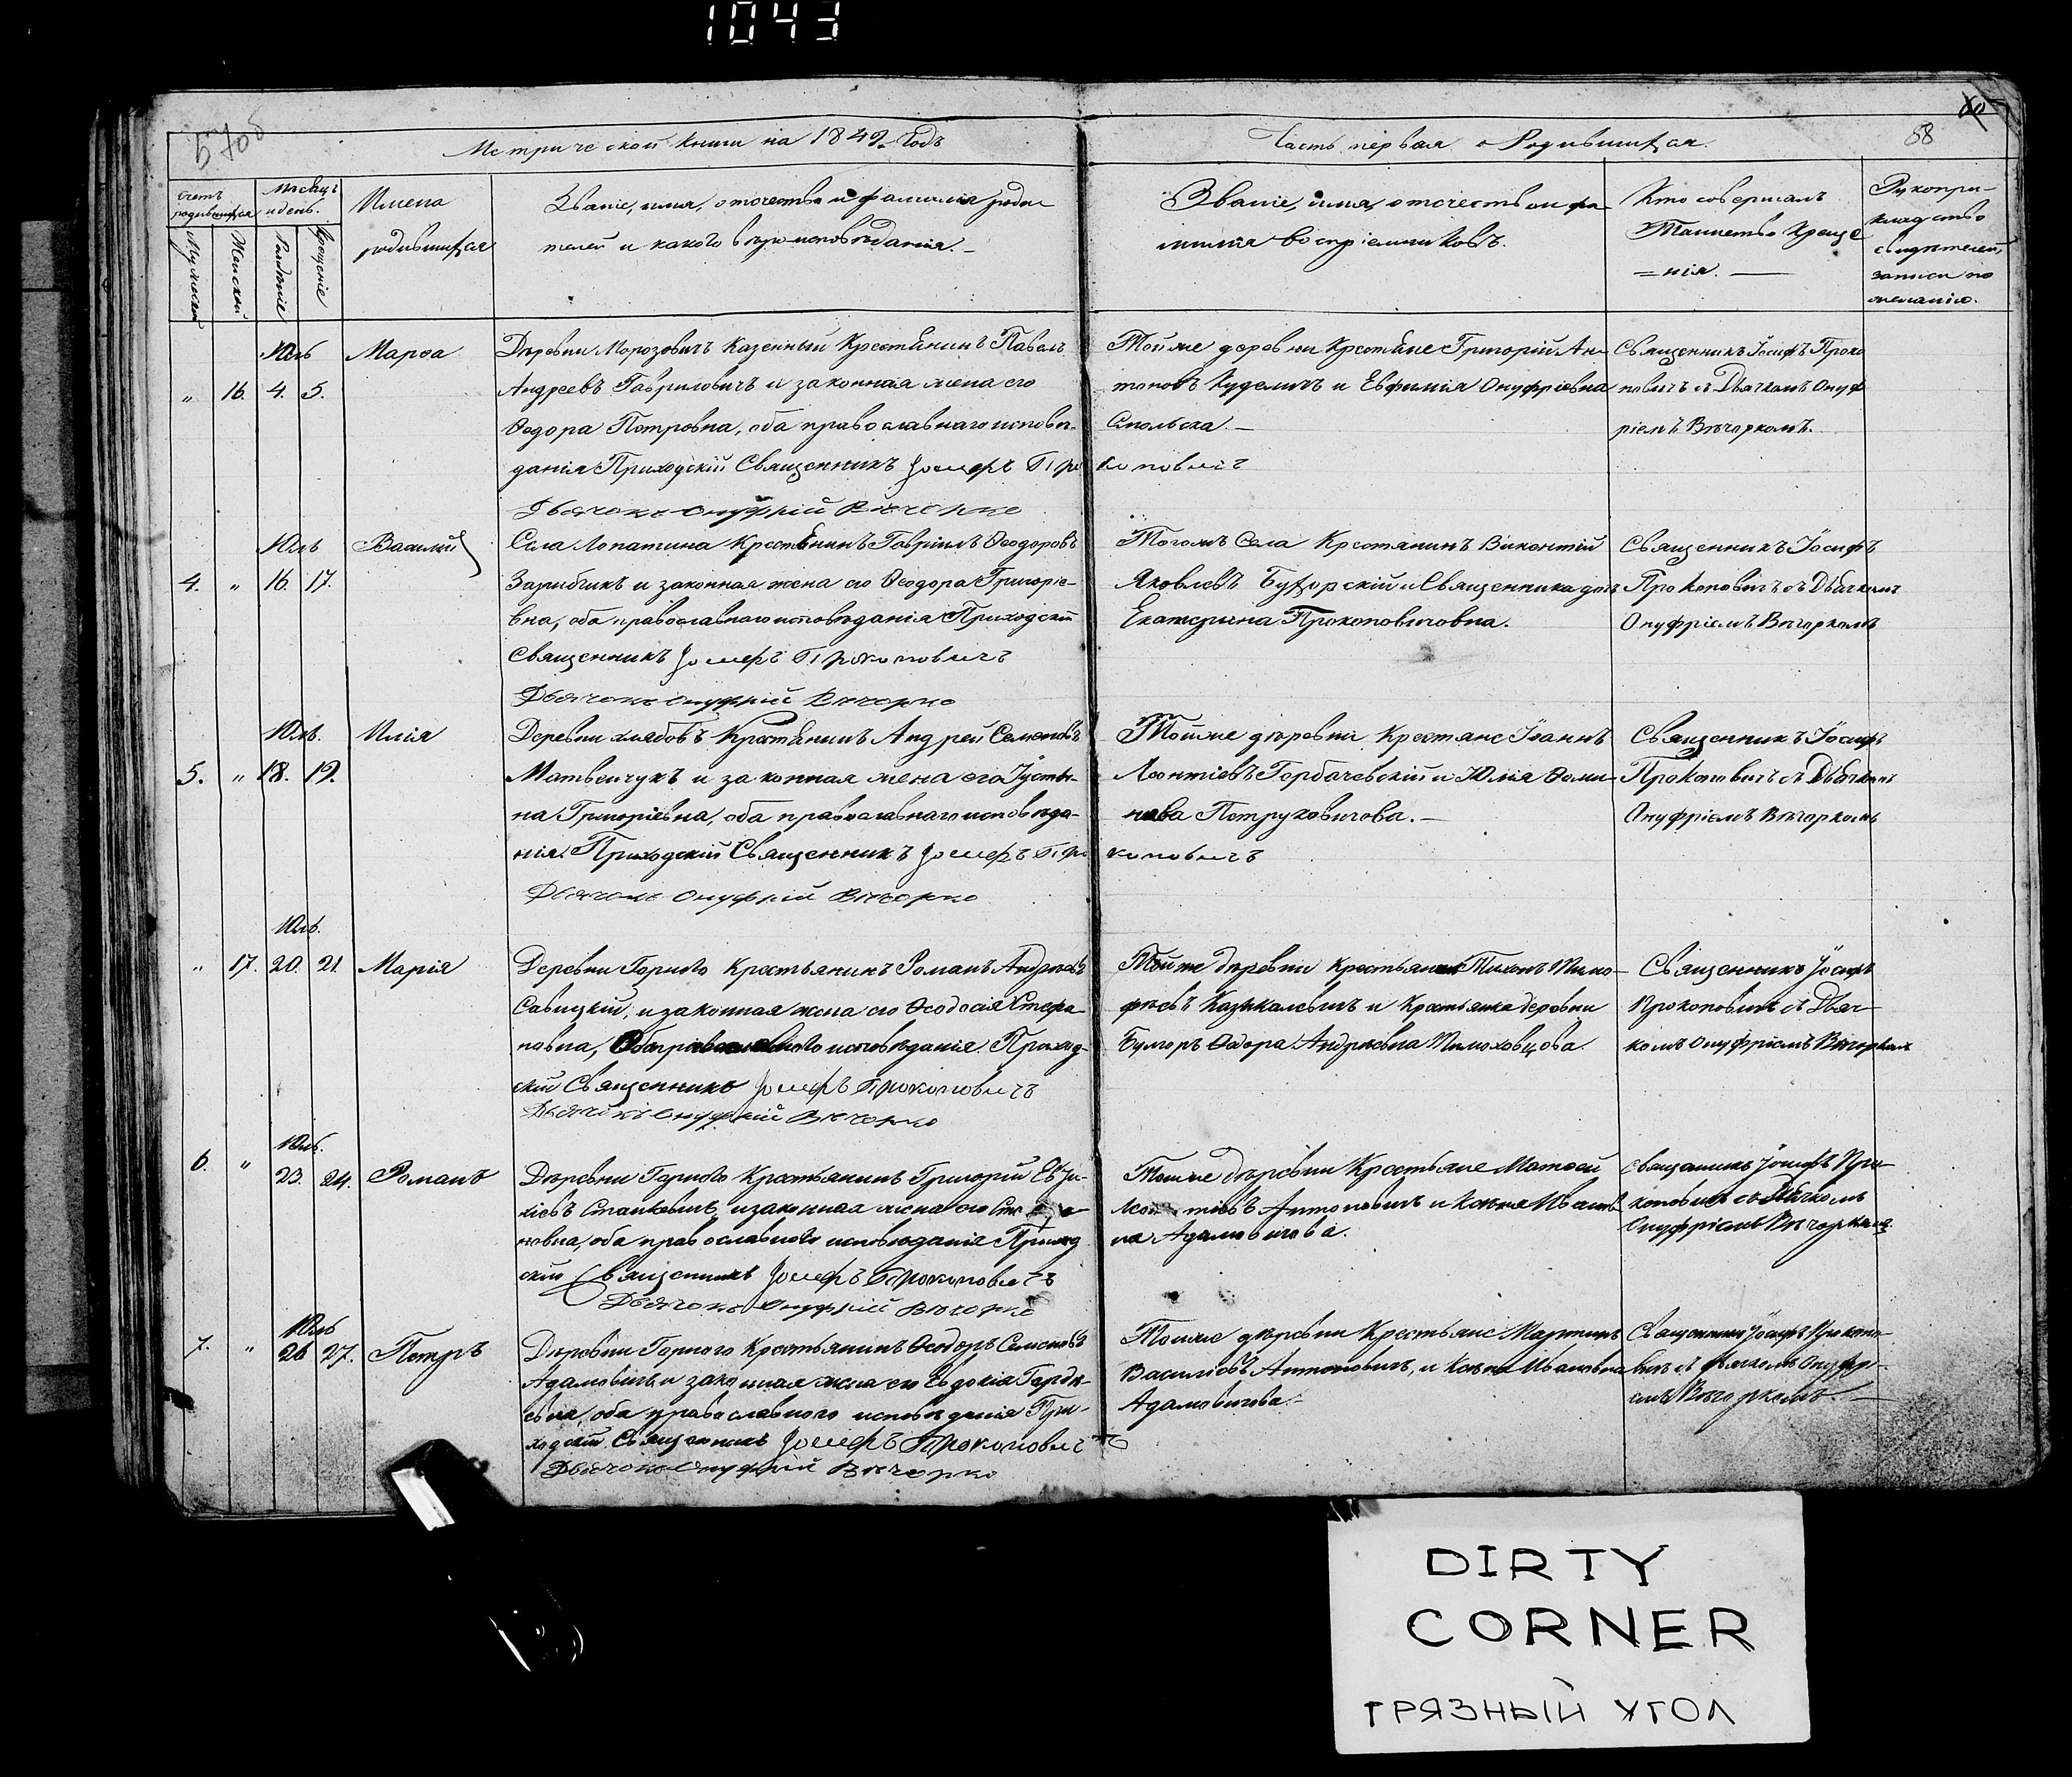 1043
5706
58
Метрической книги на 1849 Годъ
Часть первая о Родившихся.
Счетъ родившихся
Мужескій
Женскій
Мѣсяцъ и день.
Рожденіе
Крещеніе
Имена
родившихся
Званіе, имя, отчество и фамилія роди
телей и какого вѣроисповѣданія.
Званіе, имя, отчество и фа
милія воспріемниковъ.
Кто совершалъ
Таинство Креще
=нія.
Рукопри-
кладство
свидѣтелей
записи по
желанію.
Юль
" 16. 4. 5.
Марѳа
Деревни Морозовичъ Казенный Крестянинъ Павелъ
Андреевъ Гавриловичъ и законная жена его
Ѳеодора Петровна, оба православнаго исповѣ-
данія Приходскій Священникъ Іосифъ Про
коповичъ
Дьячокъ Онуфрій Вѣчорко
Тойже деревни Крестяне Григорій Ан
тоновъ Куделичъ и Евфимія Онуфріевна
Смольска.
Священникъ Іосифъ Проко
повичъ съ Дьячкомъ Онуф
ріемъ Вѣчоркомъ.
Юль
4. " 16. 17.
Василій
Села Лопатина Крестянинъ Гавріилъ Ѳеодоровъ
Зарибчикъ и законная жена его Ѳеодора Григоріе-
вна, оба православнаго исповѣданія Приходскій
Священникъ Іосифъ Прокоповичъ
Дьячокъ Онуфрій Вѣчорко
Тогожъ Села Крестянинъ Викентій
Яковлевъ Буторскій и Священника дочь
Екатерина Прокоповичовна.
Священникъ Іосифъ
Прокоповичъ съ Дьячкомъ
Онуфріемъ Вѣчоркомъ
Юль.
5. " 18. 19.
Илія
Деревни Хлябовъ Крестянинъ Андрей Семеновъ
Матвейчукъ и законная жена его Іусты-
на Григоріевна, оба православнаго исповѣда-
нія. Приходскій Священникъ Іосифъ Про
коповичъ
Дьячокъ Онуфрій Вѣчорко
Тойже деревни Крестяне Іоаннъ
Леонтіевъ Горбачевскій и Юлія Ѳоми-
нова Петруковичова.
Священникъ Іосифъ
Прокоповичъ съ Дьячкомъ
Онуфріемъ Вѣчоркомъ
Юль.
" 17. 20. 21.
Марія
Деревни Горного Крестьянинъ Романъ Андреевъ
Савицкій, и законная жена его Ѳеодосія Стефа-
новна, Оба православного исповѣданія. Приход-
скій Священникъ Іосифъ Прокоповичъ
Дьячокъ Онуфрій Вѣчорко
Тойже деревни Крестьянинъ Тихонъ Тимо-
фѣевъ и Крестьянка деревни
Ѳеодора Андреевна Тимоховцова.
Священникъ Іосифъ
Прокоповичъ съ Дьяч-
комъ Онуфріемъ Вѣчоркомъ
Юль.
6. " 23. 24.
Романъ
Деревни Горного Крестьянинъ Григорій
и законная жена его
новна, оба православного исповѣданія Приход
скій Священникъ Іосифъ Прокоповичъ
Дьячокъ Онуфрій Вѣчорко
Тойже деревни Крестьяне Матѳей
Леонтіевъ Антоновичъ и Ксенія Иванов
на Адамовичова.
Священникъ Іосифъ Про-
коповичъ съ Дьячкомъ
Онуфріемъ Вѣчоркомъ
Юль
7. " 26 27.
Петръ
Деревни Горного Крестьянинъ Ѳеодоръ Семеновъ
Адамовичъ и законная жена его Евдокія Горде-
евна, оба православного исповѣданія При-
ходскій Священникъ Іосифъ Прокопович
ъ
Дьячокъ Онуфрій Вѣчорко
Тойже деревни Крестьяне Мартинъ
Василіевъ Антоновичъ, и Ксенія Ивановна
Адамовичова.
Священникъ Іосифъ Прокопо-
вичъ съ Дьячкомъ Онуфрі-
емъ Вѣчоркомъ.
DIRTY
CORNER
ГРЯЗНЫЙ УГОЛ